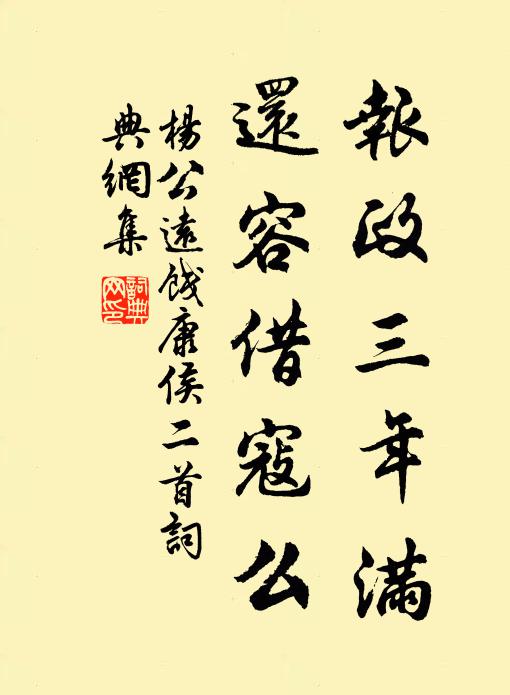 報政三年滿
還容借寇么
楊公遠餞康侯二首詞
典網集
詞典網印